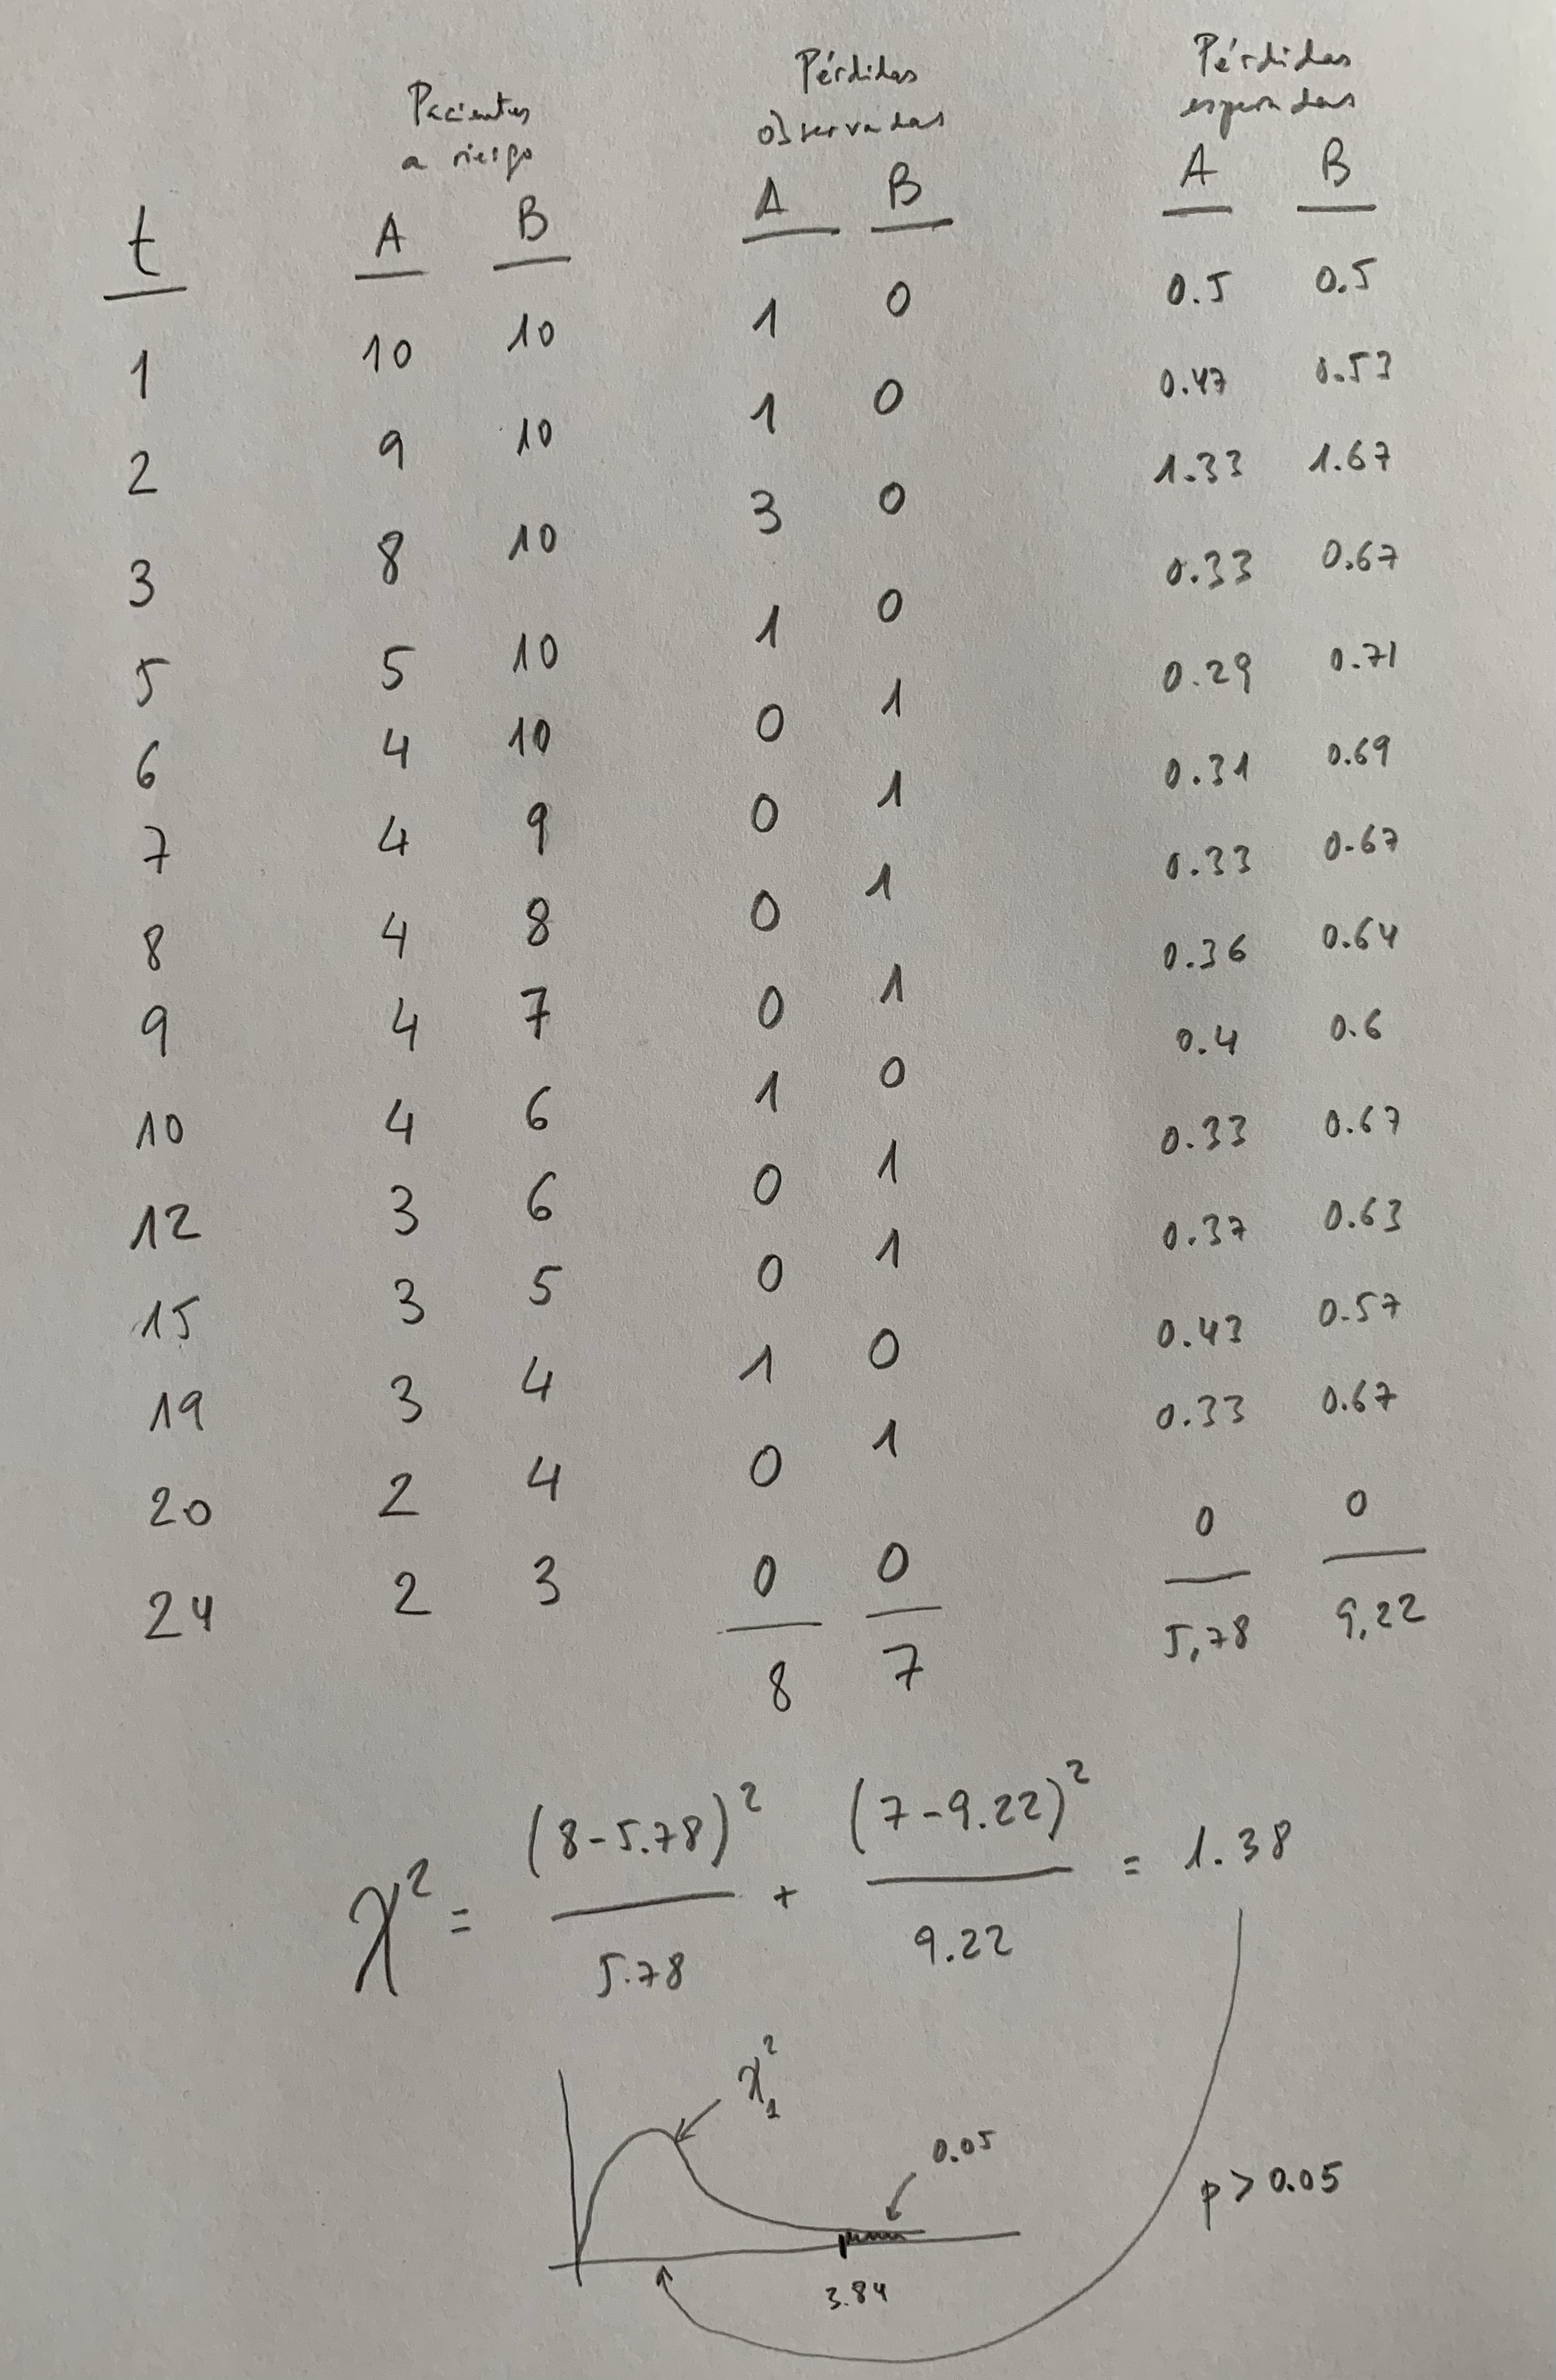 Pacientes a riesgo Pérdidas observadas Pérdidas esperadas
t A B A B A B
1 10 10 1 0 0.5 0.5
2 9 10 1 0 0.47 0.53
3 8 10 3 0 1.33 1.67
5 5 10 1 0 0.33 0.67
6 4 10 0 1 0.29 0.71
7 4 9 0 1 0.31 0.69
8 4 8 0 1 0.33 0.67
9 4 7 0 1 0.36 0.64
10 4 6 1 0 0.4 0.6
12 3 6 0 1 0.33 0.67
15 3 5 0 1 0.37 0.63
19 3 4 1 0 0.43 0.57
20 2 4 0 1 0.33 0.67
24 2 3 0 0 0 0
8 7 5,78 9,22
χ² = (8-5.78)²/5.78 + (7-9.22)²/9.22 = 1.38
χ²₁
0.05
p > 0.05
3.84